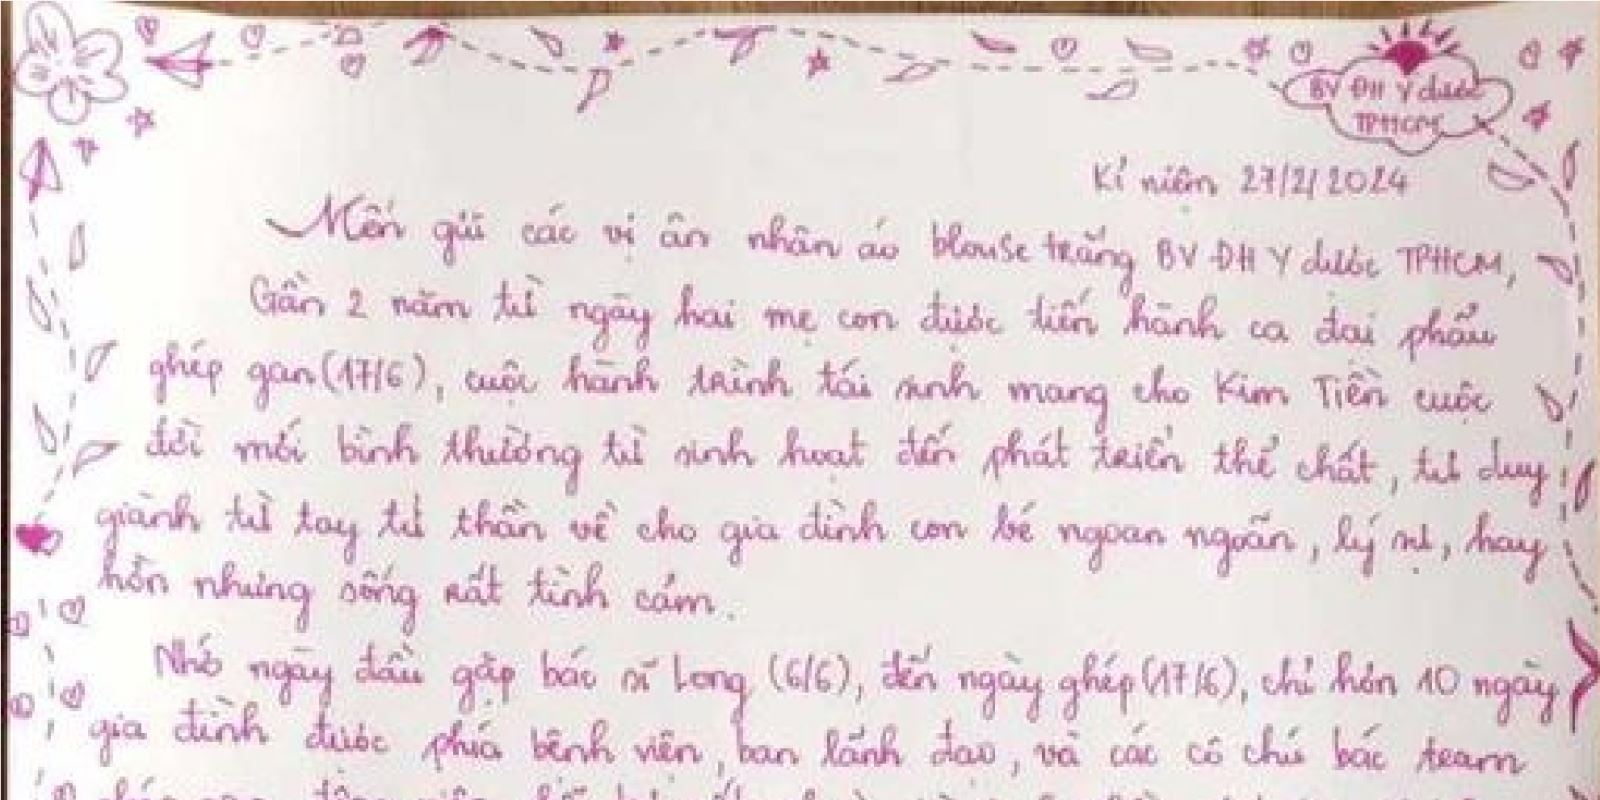 BV ĐH Y dược
TPHCM
Kỉ niệm 27/2/2024
Mến gửi các vị ân nhân áo blouse trắng BV ĐH Y dược TPHCM,
Gần 2 năm từ ngày hai mẹ con được tiến hành ca đại phẫu
ghép gan (17/6), cuộc hành trình tái sinh mang cho Kim Tiền cuộc
đời mới bình thường từ sinh hoạt đến phát triển thể chất, tư duy
giành từ tay tử thần về cho gia đình con bé ngoan ngoãn, lý sự, hay
hờn nhưng sống rất tình cảm.
Nhớ ngày đầu gặp bác sĩ Long (6/6), đến ngày ghép (17/6), chỉ hơn 10 ngày
gia đình được phía bệnh viện, ban lãnh đạo, và các cô chú bác team